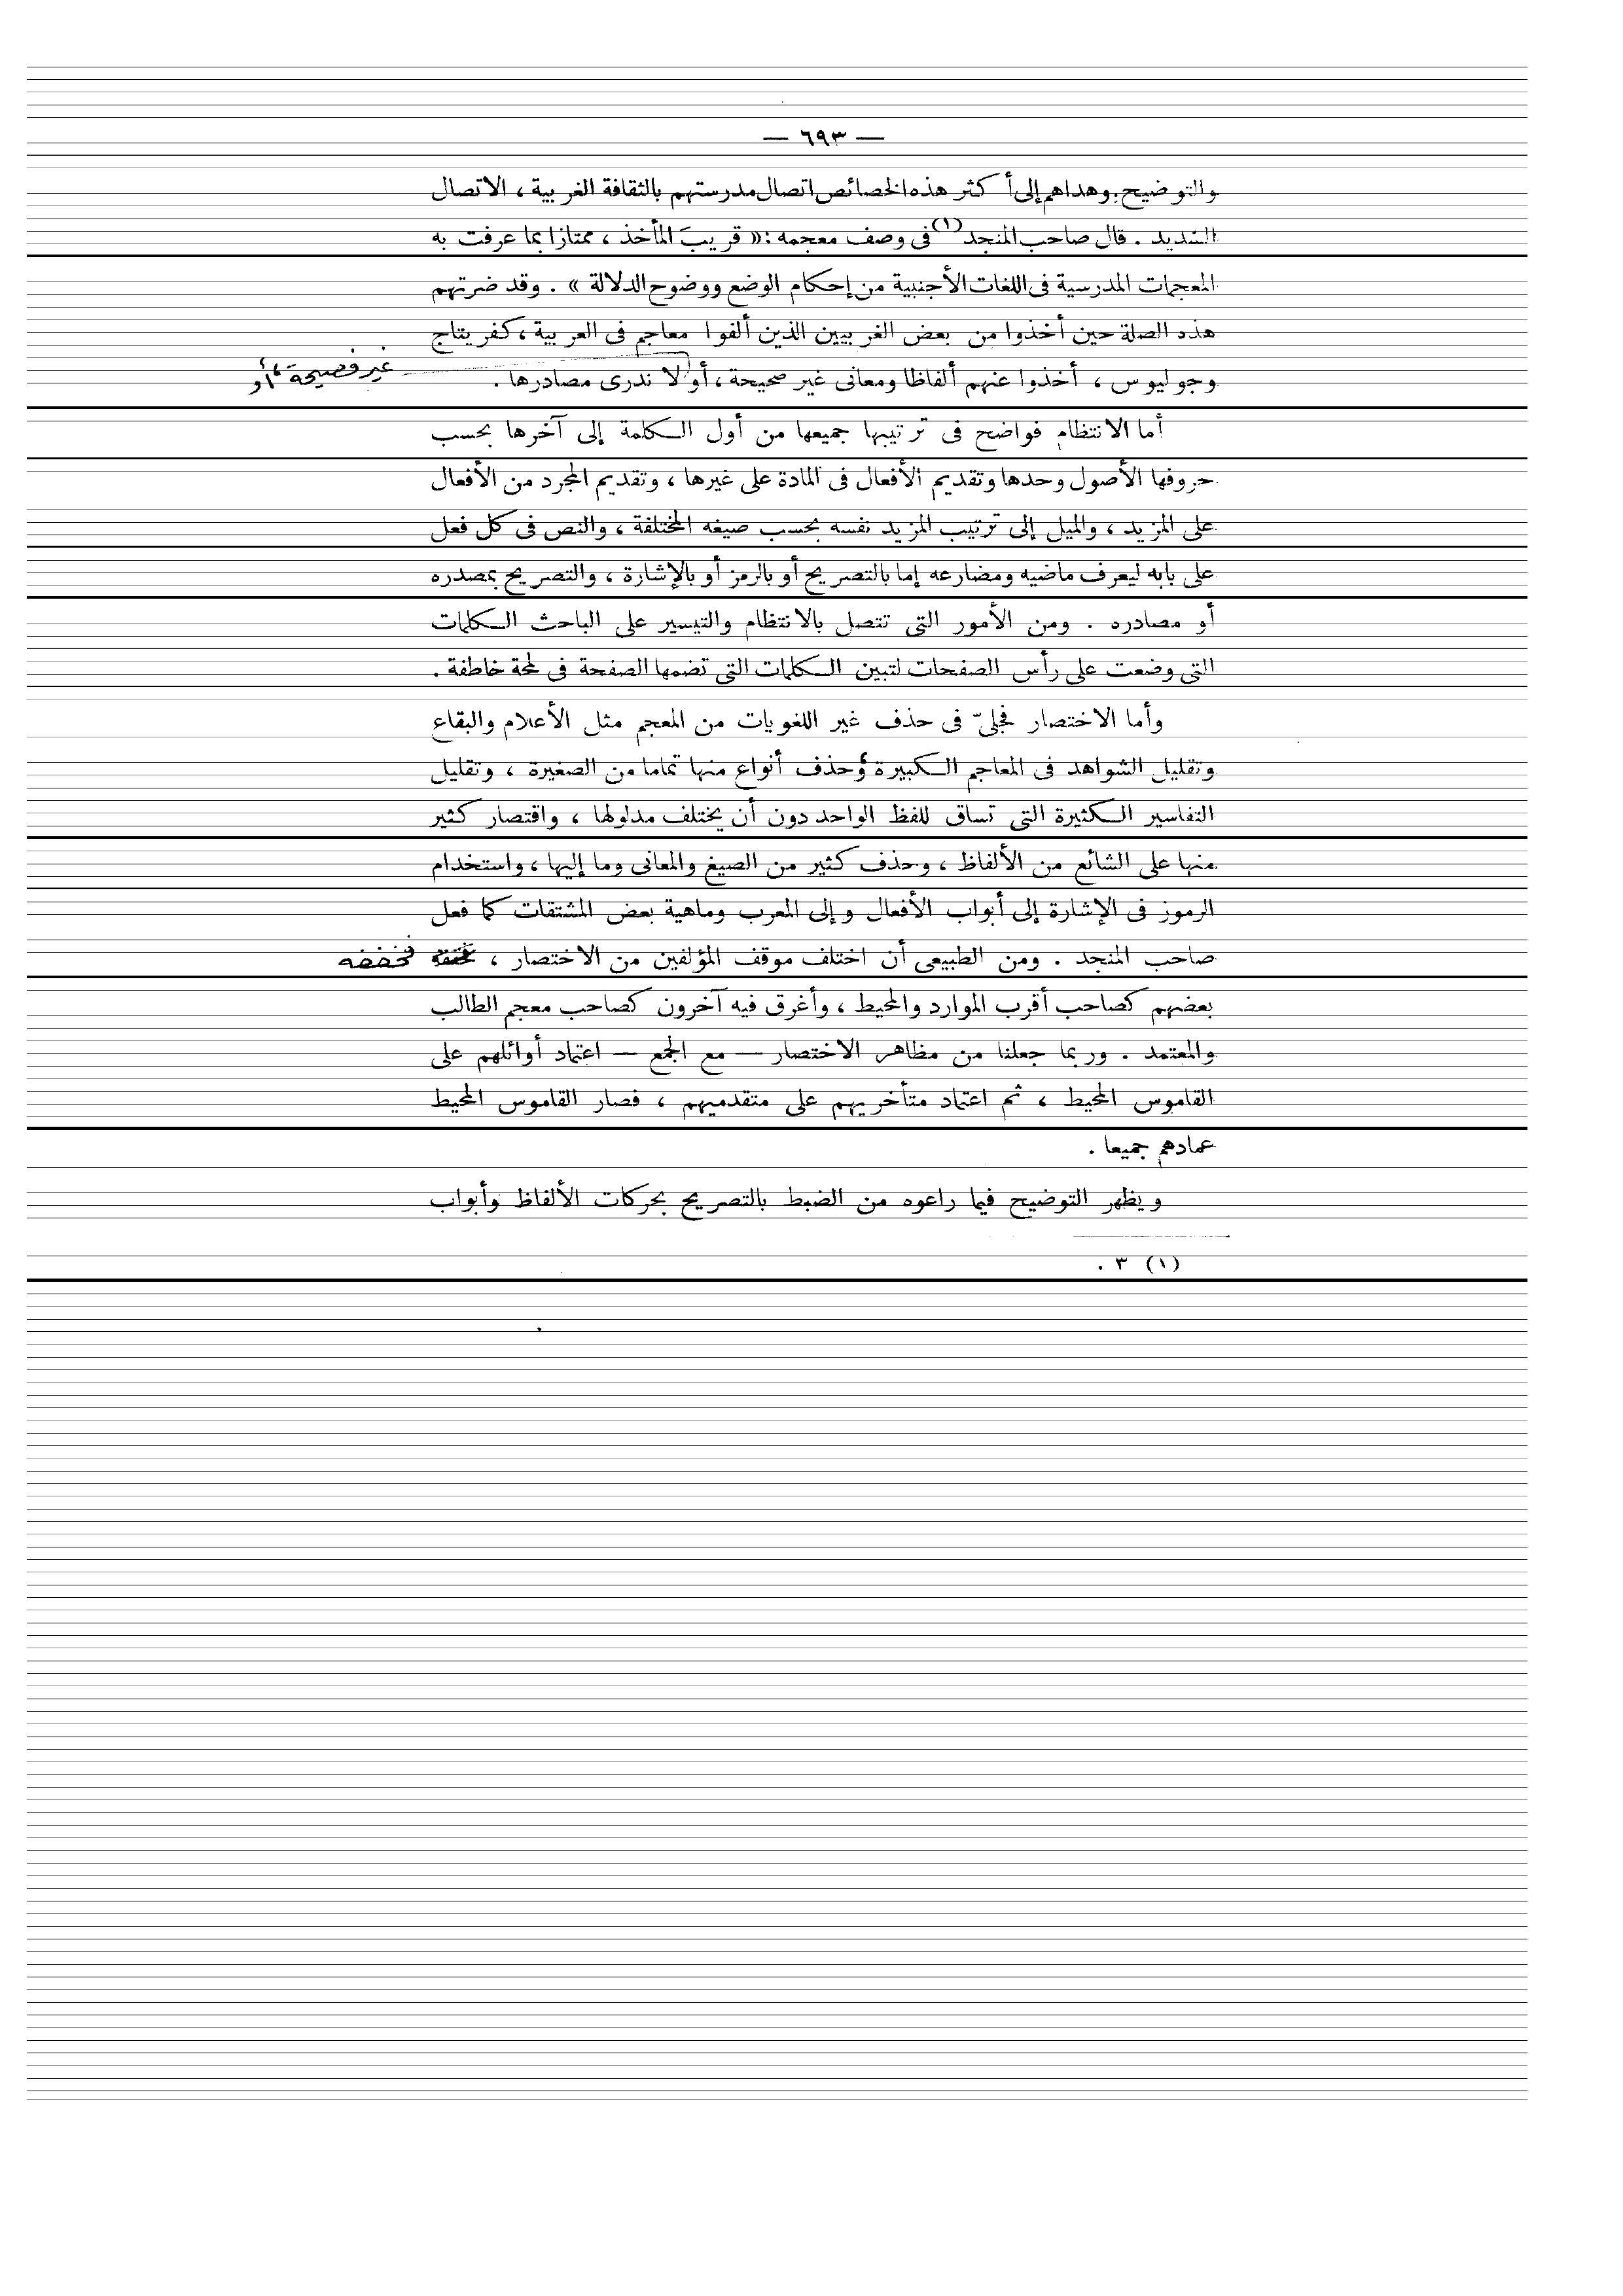 — ٦٩٣ —
والتوضيح. وهداهم إلى أكثر هذه الخصائص اتصال مدرستهم بالثقافة الغربية ، الاتصال
الشديد . قال صاحب المنجد(١) فى وصف معجمه : « قريبَ المأخذ ، ممتازا بما عرفت به
المعجمات المدرسية فى اللغات الأجنبية من إحكام الوضع ووضوح الدلالة » . وقد ضرتهم
هذه الصلة حين أخذوا من بعض الغربيين الذين ألفوا معاجم فى العربية ، كفريتاج
وجوليوس ، أخذوا عنهم ألفاظا ومعانى غير صحيحة ، أو لا ندرى مصادرها .
غير فصيحة ، أو
أما الانتظام فواضح فى ترتيبها جميعها من أول الكلمة إلى آخرها بحسب
حروفها الأصول وحدها وتقديم الأفعال فى المادة على غيرها ، وتقديم المجرد من الأفعال
على المزيد ، والميل إلى ترتيب المزيد نفسه بحسب صيغه المختلفة ، والنص فى كل فعل
على بابه ليعرف ماضيه ومضارعه إما بالتصريح أو بالرمز أو بالإشارة ، والتصريح بمصدره
أو مصادره . ومن الأمور التى تتصل بالانتظام والتيسير على الباحث الكلمات
التى وضعت على رأس الصفحات لتبين الكلمات التى تضمها الصفحة فى لمحة خاطفة .
وأما الاختصار فجلىّ فى حذف غير اللغويات من المعجم مثل الأعلام والبقاع
وتقليل الشواهد فى المعاجم الكبيرة وحذف أنواع منها تماما من الصغيرة ، وتقليل
التفاسير الكثيرة التى تساق للفظ الواحد دون أن يختلف مدلولها ، واقتصار كثير
منها على الشائع من الألفاظ ، وحذف كثير من الصيغ والمعانى وما إليها ، واستخدام
الرموز فى الإشارة إلى أبواب الأفعال وإلى المعرب وماهية بعض المشتقات كما فعل
صاحب المنجد . ومن الطبيعى أن اختلف موقف المؤلفين من الاختصار ، فخففه
بعضهم كصاحب أقرب الموارد والمحيط ، وأغرق فيه آخرون كصاحب معجم الطالب
والمعتمد . وربما جعلنا من مظاهر الاختصار — مع الجمع — اعتماد أوائلهم على
القاموس المحيط ، ثم اعتماد متأخريهم على متقدميهم ، فصار القاموس المحيط
عمادهم جميعا .
ويظهر التوضيح فيما راعوه من الضبط بالتصريح بحركات الألفاظ وأبواب
(١) ٣ .